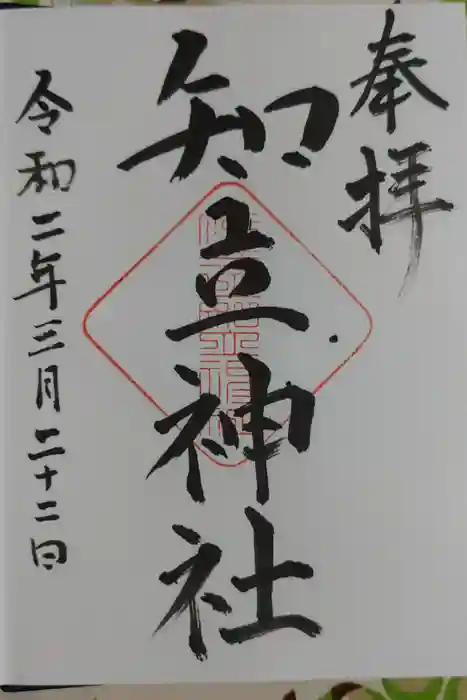 奉拝
知立神社
令和二年三月二十二日